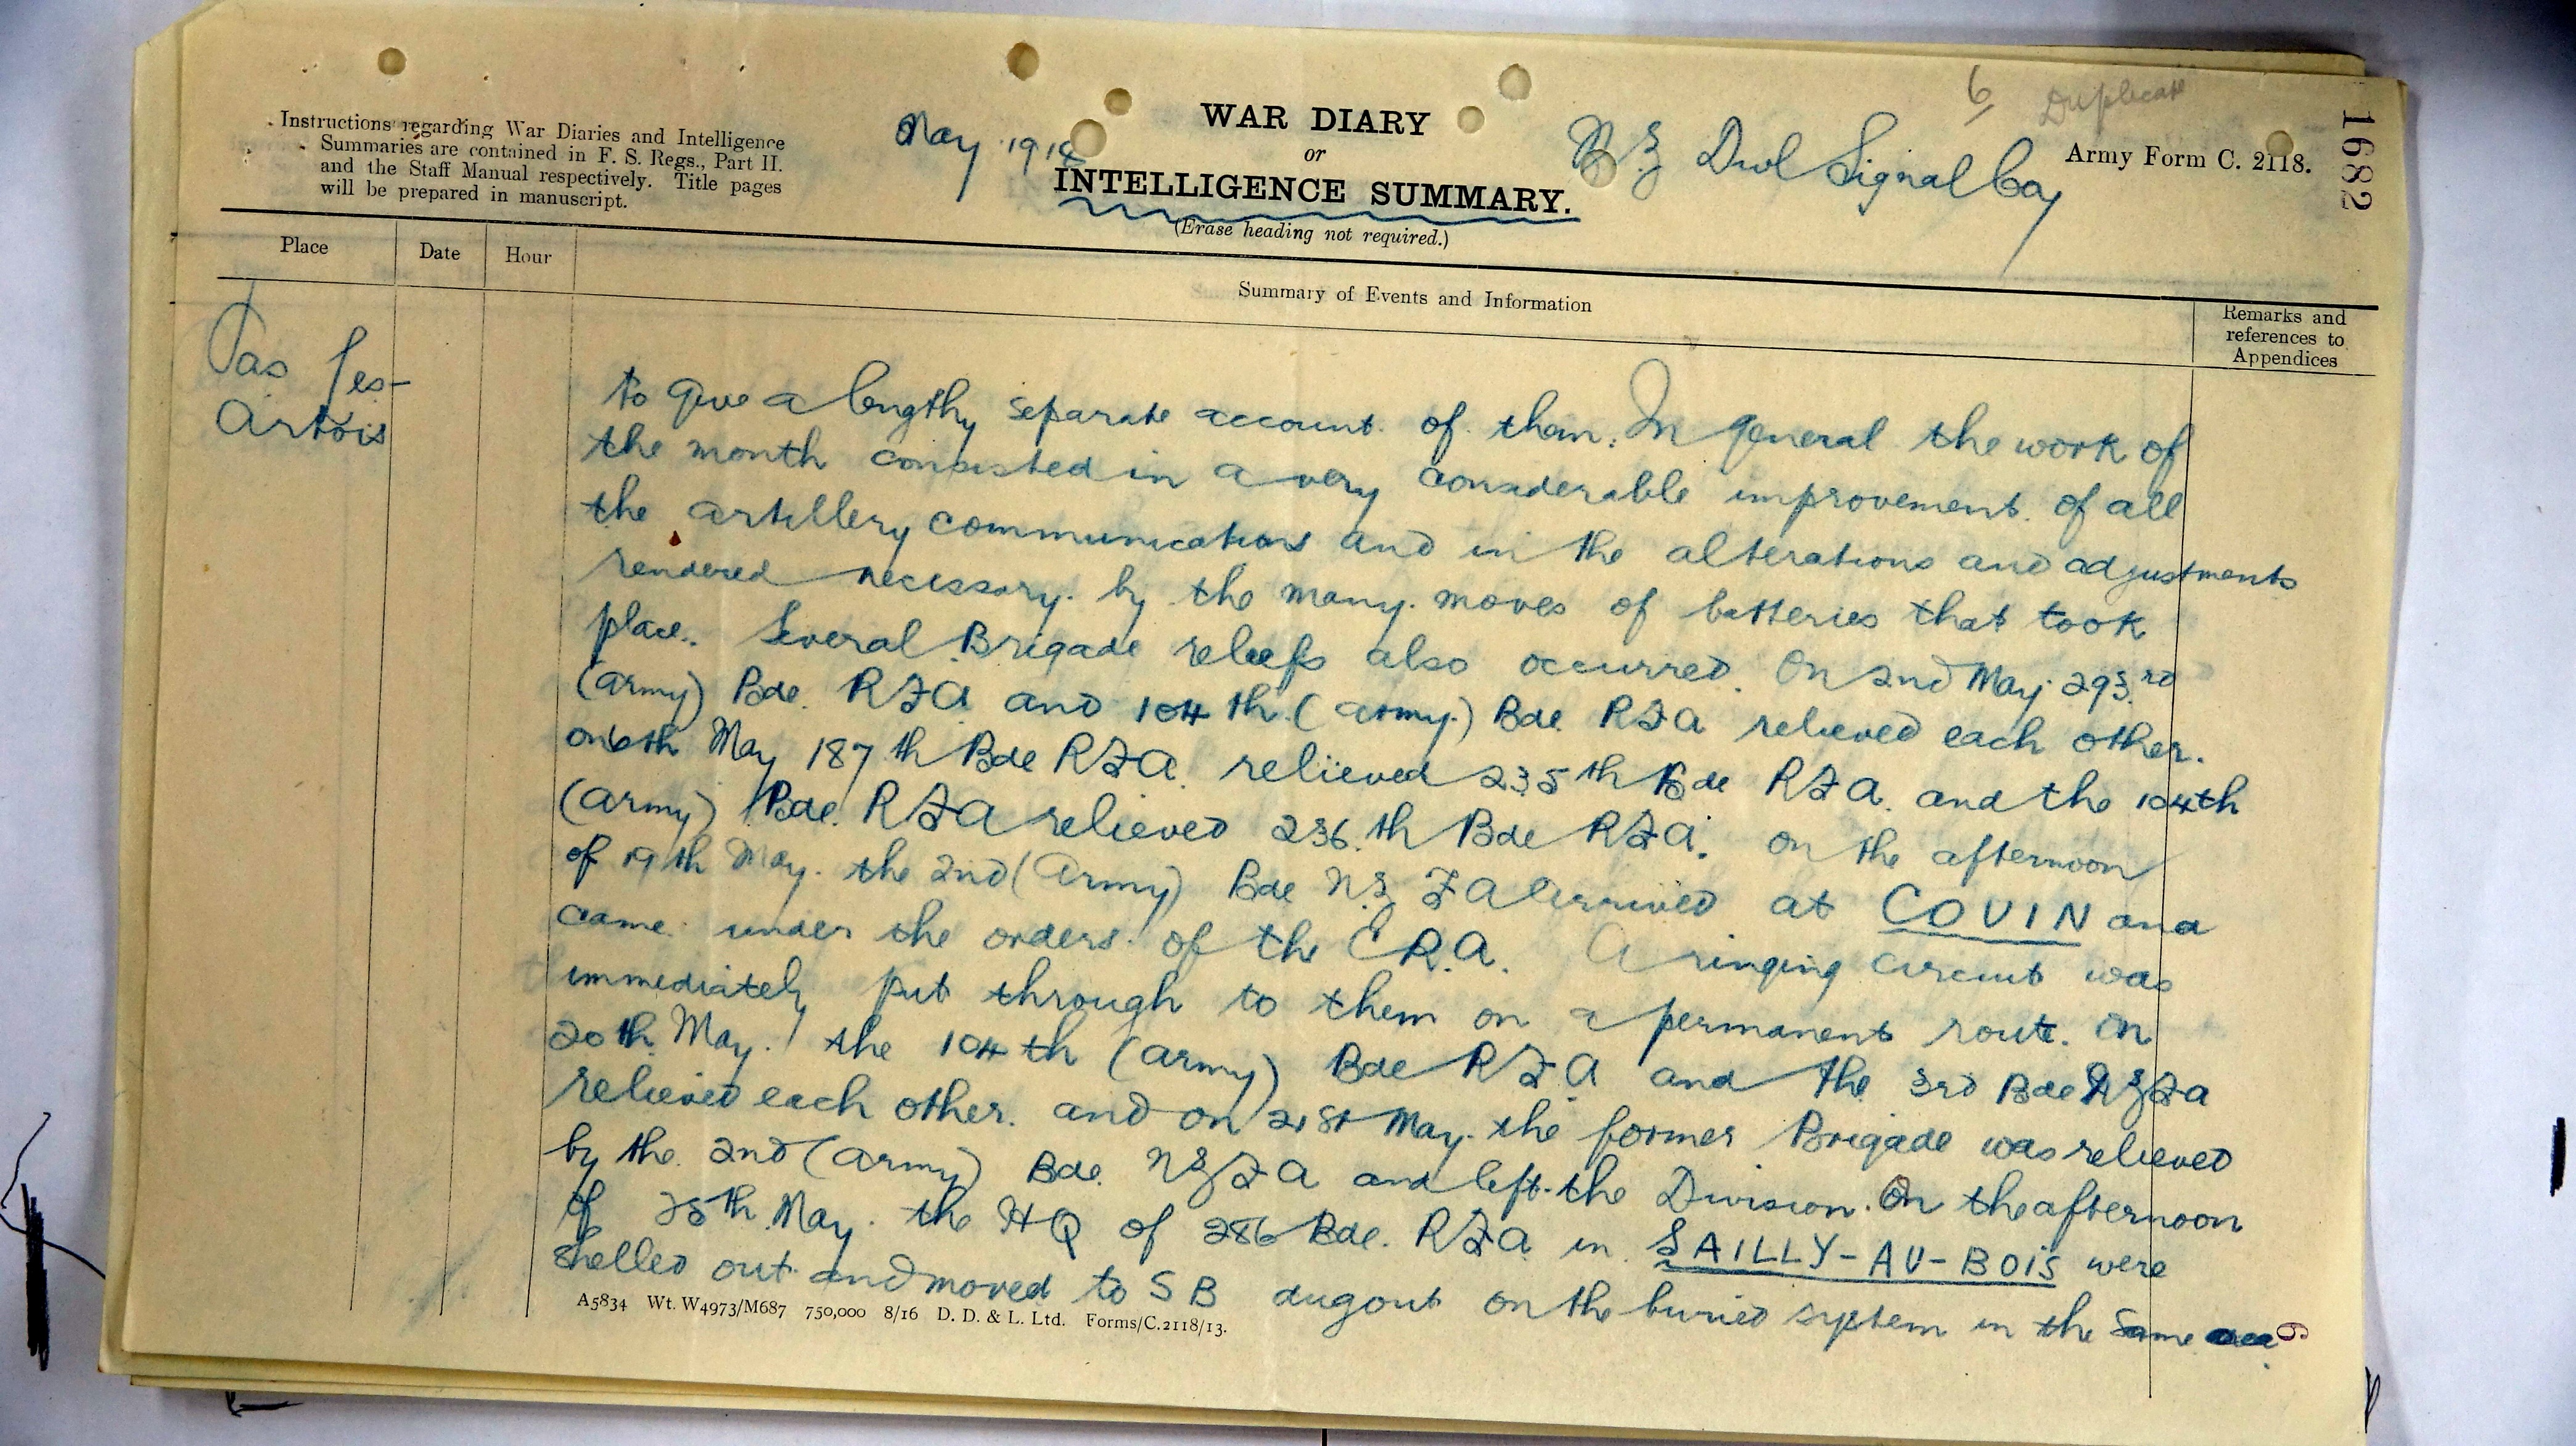 6
Duplicate
1682
Instructions regarding War Diaries and Intelligence
Summaries are contained in F. S. Regs., Part II.
and the Staff Manual respectively. Title pages
will be prepared in manuscript.
May 1918
WAR DIARY
or
INTELLIGENCE SUMMARY.
(Erase heading not required.)
N Z Divl Signal Coy
Army Form C. 2118.
Place
Date
Hour
Summary of Events and Information
Remarks and
references to
Appendices
Pas les-
Artois
to give a lengthy separate account of them. In general the work of
the month consisted in a very considerable improvement of all
the artillery communications and in the alterations and adjustments
rendered necessary by the many moves of batteries that took
place. Several Brigade reliefs also occurred. On 2nd May 293rd
(Army) Bde. RFA and 104th (Army) Bde RFA relieved each other.
on 6th May 187th Bde RFA. relieved 235th Bde RFA. and the 104th
(Army) Bde. RFA relieved 236.th Bde RFA. on the afternoon
of 19th May. the 2nd (Army) Bde N.Z FA arrived at COVIN and
came under the orders of the CRA. A ringing circuit was
immediately put through to them on a permanent route. On
20th May. the 104th (Army) Bde RFA and the 3rd Bde NZFA
relieved each other. and on 21st May. the former Brigade was relieved
by the 2nd (Army) Bde. NZFA and left the Division. On the afternoon
of 25th May. the HQ of 286 Bde. RFA in SAILLY-AU-BOIS were
shelled out and moved to S B dugout on the buried system in the same area
A5834 Wt. W4973/M687 750,000 8/16 D. D. & L. Ltd. Forms/C.2118/13.
6